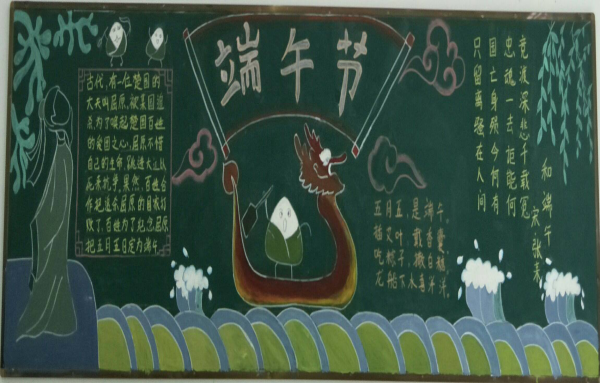 端午节
古代，有一位楚国的
大夫叫屈原，被某国追
杀，为了唤起楚国百姓
的爱国之心，屈原不惜
自己的生命，跳进大江从
此来抗争，果然，百姓合
作把追杀屈原的国家打
败了，百姓为了纪念屈原
把五月五日定为端午
五月五，是端午。
插艾叶，戴香囊。
吃粽子，撒白糖。
龙船下水喜洋洋
和端午
宋张耒
竞渡深悲千载冤
忠魂一去讵能何
国亡身殒今何有
只留离骚在人间